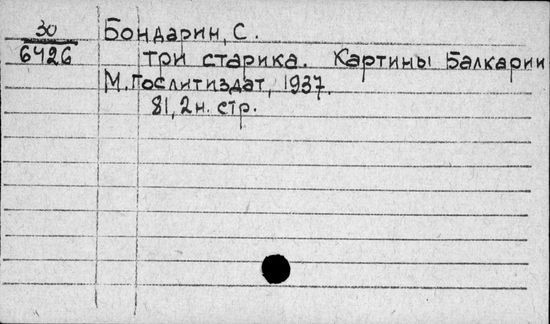 30
6426
Бондарин, С.
Три старика. Картины Балкарии
М. Гослитиздат, 1937.
81, 2н. стр.